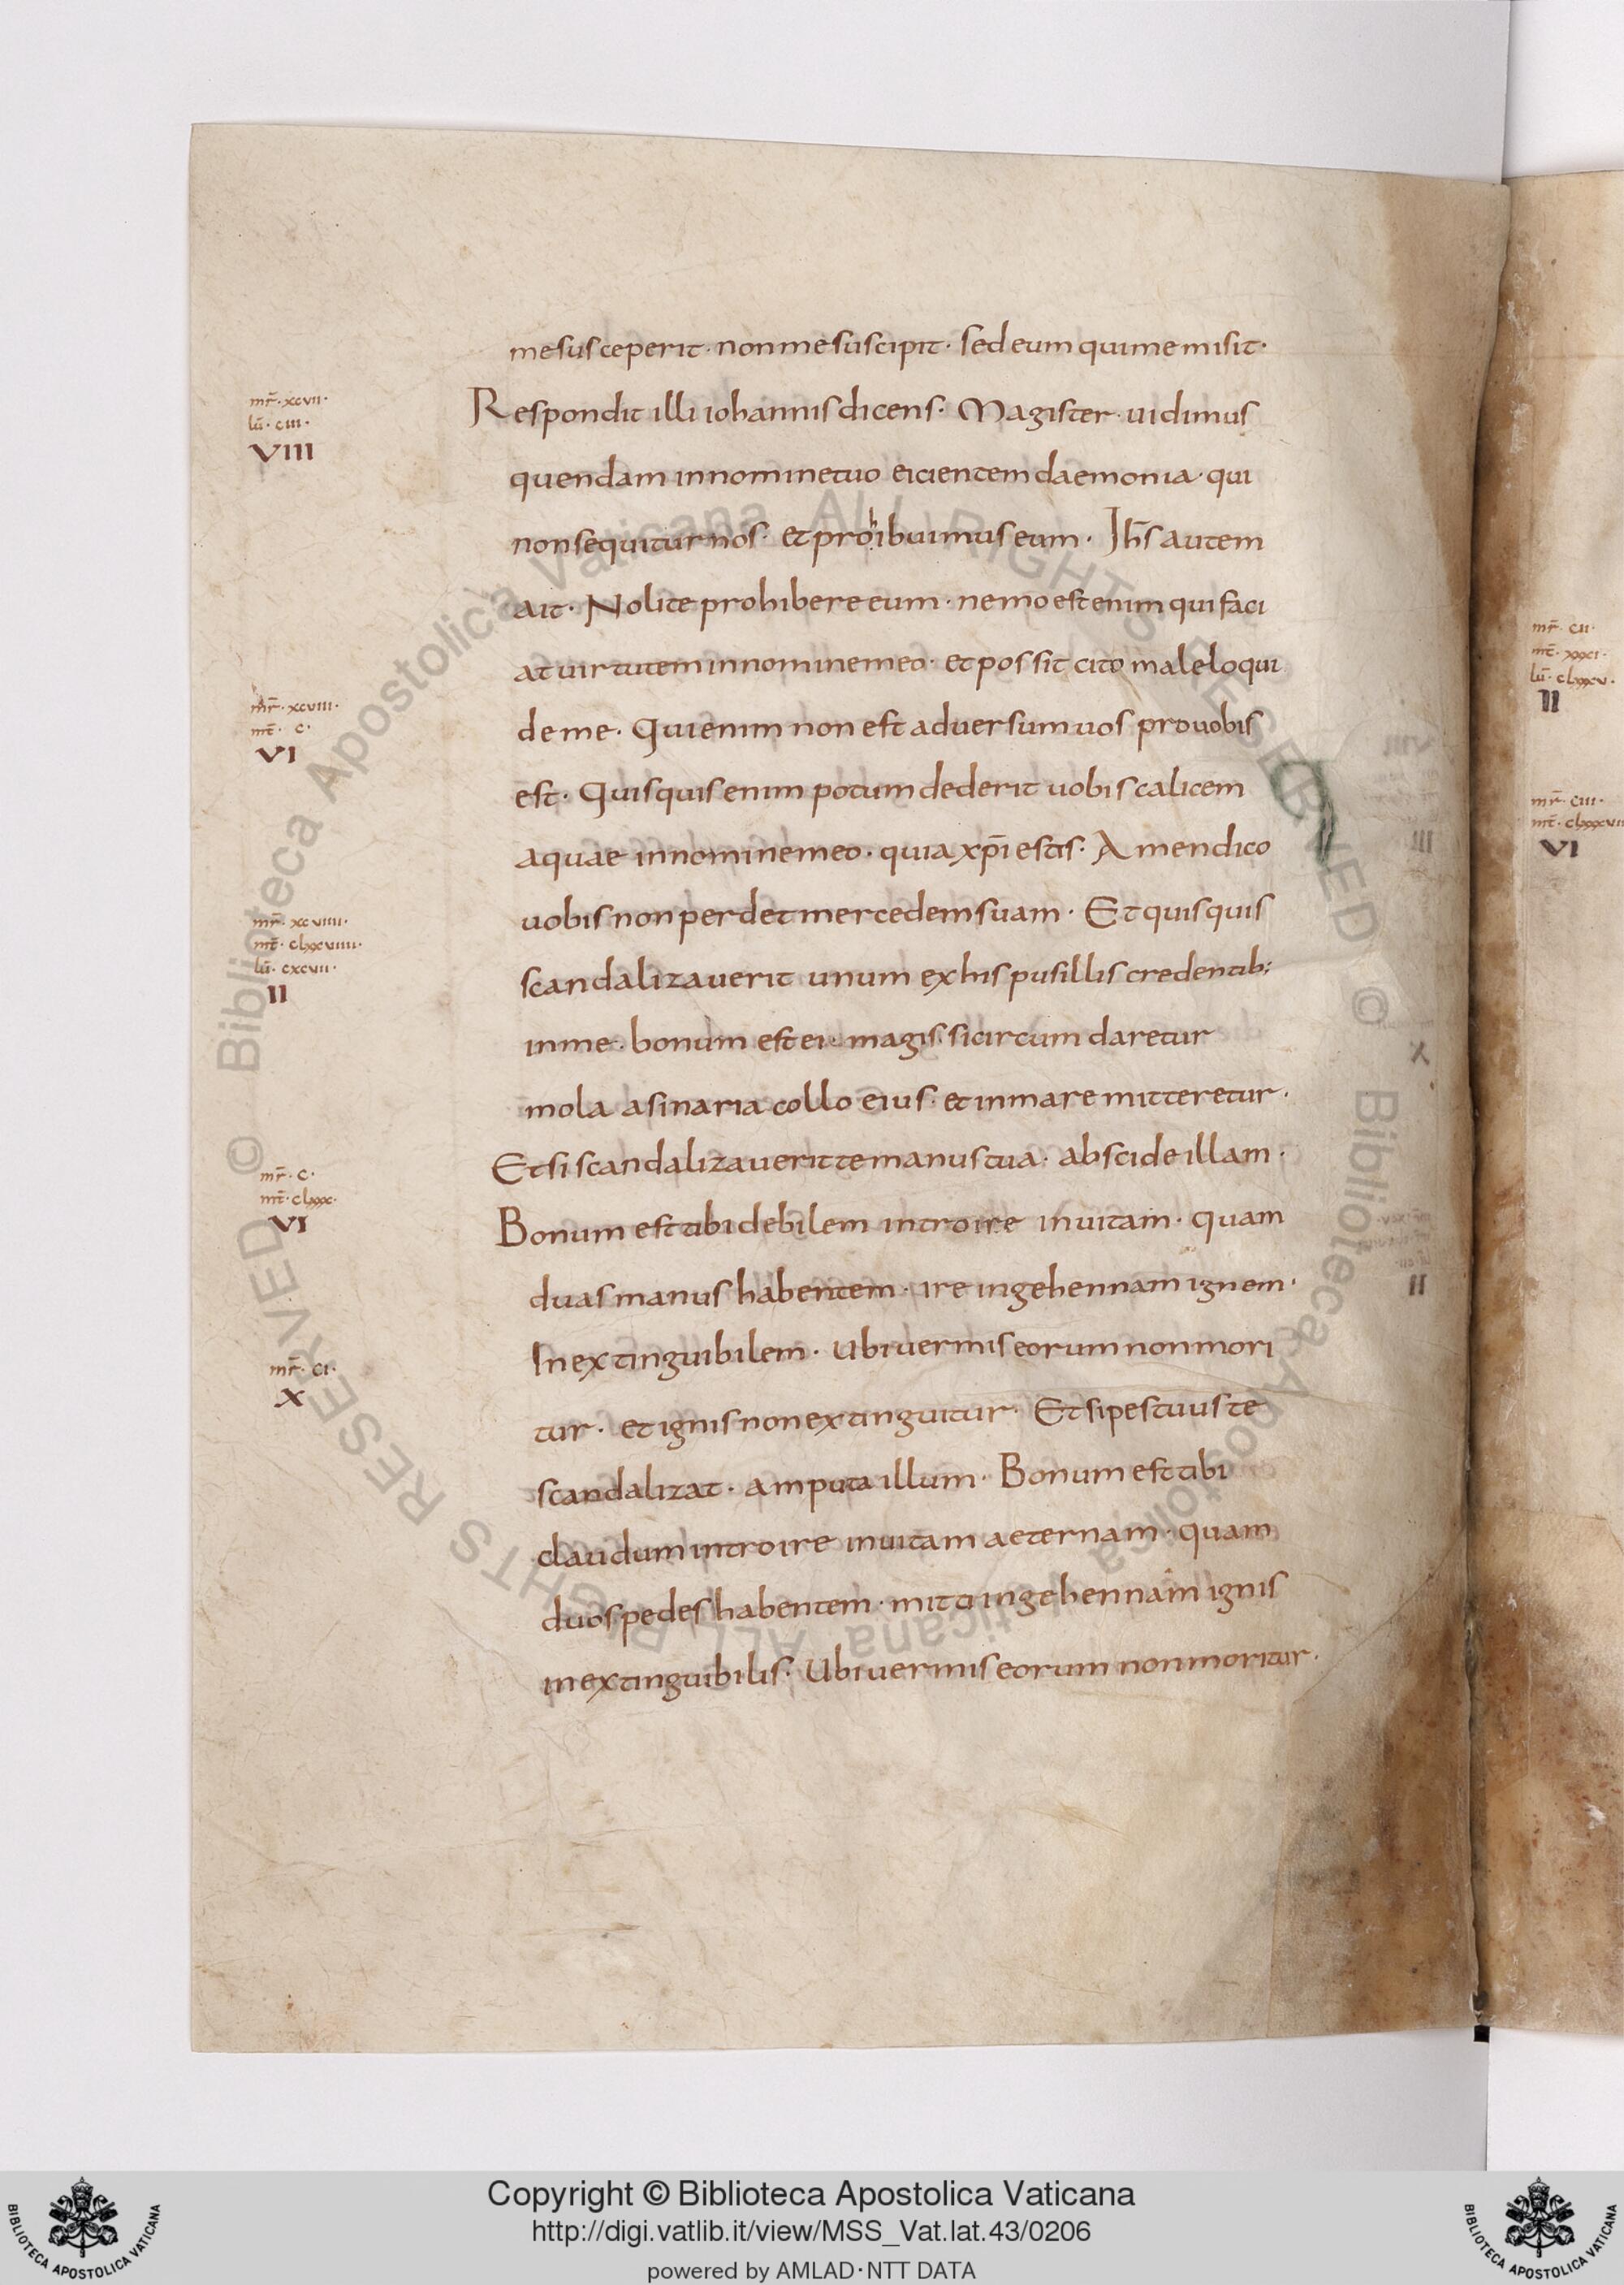 mesusceperit · non me suscipit · sed eum qui me misit ·
mr̅ · xcvii ·
lū · ciii ·
VIII
Respondit illi iohannis dicens · Magister · uidimus
quendam in nomine tuo eicientem daemonia · qui
non sequitur nos · et prohibuimus eum · Ih̅s autem
ait · Nolite prohibere eum · nemo est enim qui faci
at uirtutem in nomine meo · et possit cito male loqui
mr̅ · xcviii ·
mt̅ · c ·
VI
de me · Qui enim non est aduersum uos pro uobis
est · Quisquis enim potum dederit uobis calicem
aquae in nomine meo · quia xp̅i estis · Amen dico
mr̅ · xcviiii ·
mt̅ · clxxviiii ·
lū · cxcvii ·
II
uobis non perdet mercedem suam · Et quisquis
scandalizauerit unum ex his pusillis credentib;
in me · bonum est ei · magis si circumdaretur
mola asinaria collo eius · et in mare mitteretur ·
mr̅ · c ·
mt̅ · clxxx ·
VI
Et si scandalizauerit te manus tua · abscide illam ·
Bonum est tibi debilem introire in uitam · quam
duas manus habentem · ire in gehennam ignem ·
mr̅ · ci ·
X
Inextinguibilem · Ubi uermis eorum non mori
tur · et ignis non extinguitur · Et si pes tuus te
scandalizat · amputa illum · Bonum est tibi
claudum introire in uitam aeternam · quam
duos pedes habentem · mitti in gehennam ignis
inextinguibilis · Ubi uermis eorum non moritur ·
mr̅ · cii ·
mt̅ · xxxi ·
lū · clxxxv ·
II
mr̅ · ciii ·
VI
© Biblioteca Apostolica Vaticana ALL RIGHTS RESERVED
© Biblioteca Apostolica Vaticana ALL RIGHTS RESERVED
Copyright © Biblioteca Apostolica Vaticana
http://digi.vatlib.it/view/MSS_Vat.lat.43/0206
powered by AMLAD·NTT DATA
BIBLIOTECA APOSTOLICA VATICANA
BIBLIOTECA APOSTOLICA VATICANA